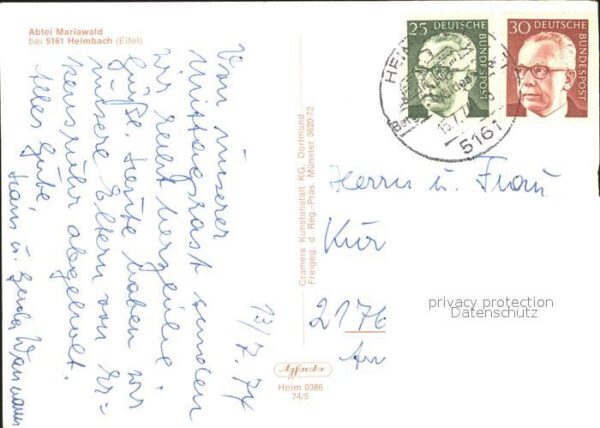 Abtei Mariawald
bei 5161 Heimbach (Eifel)
13/7.74
Von unserer
Mittagsrast senden
wir recht herzliche
Grüße. Heute haben wir
unsere Eltern von Er=
kensruhr abgeholt.
Alles Gute,
Hans u. Gerda
Cramers Kunstanstalt KG, Dortmund
Freigeg. d. Reg.-Präs. Münster 9620/72
Heim 0386
74/5
25
DEUTSCHE
BUNDESPOST
30
DEUTSCHE
BUNDESPOST
HEIM
5161
Herrn u. Frau
Kur
2176
privacy protection
Datenschutz